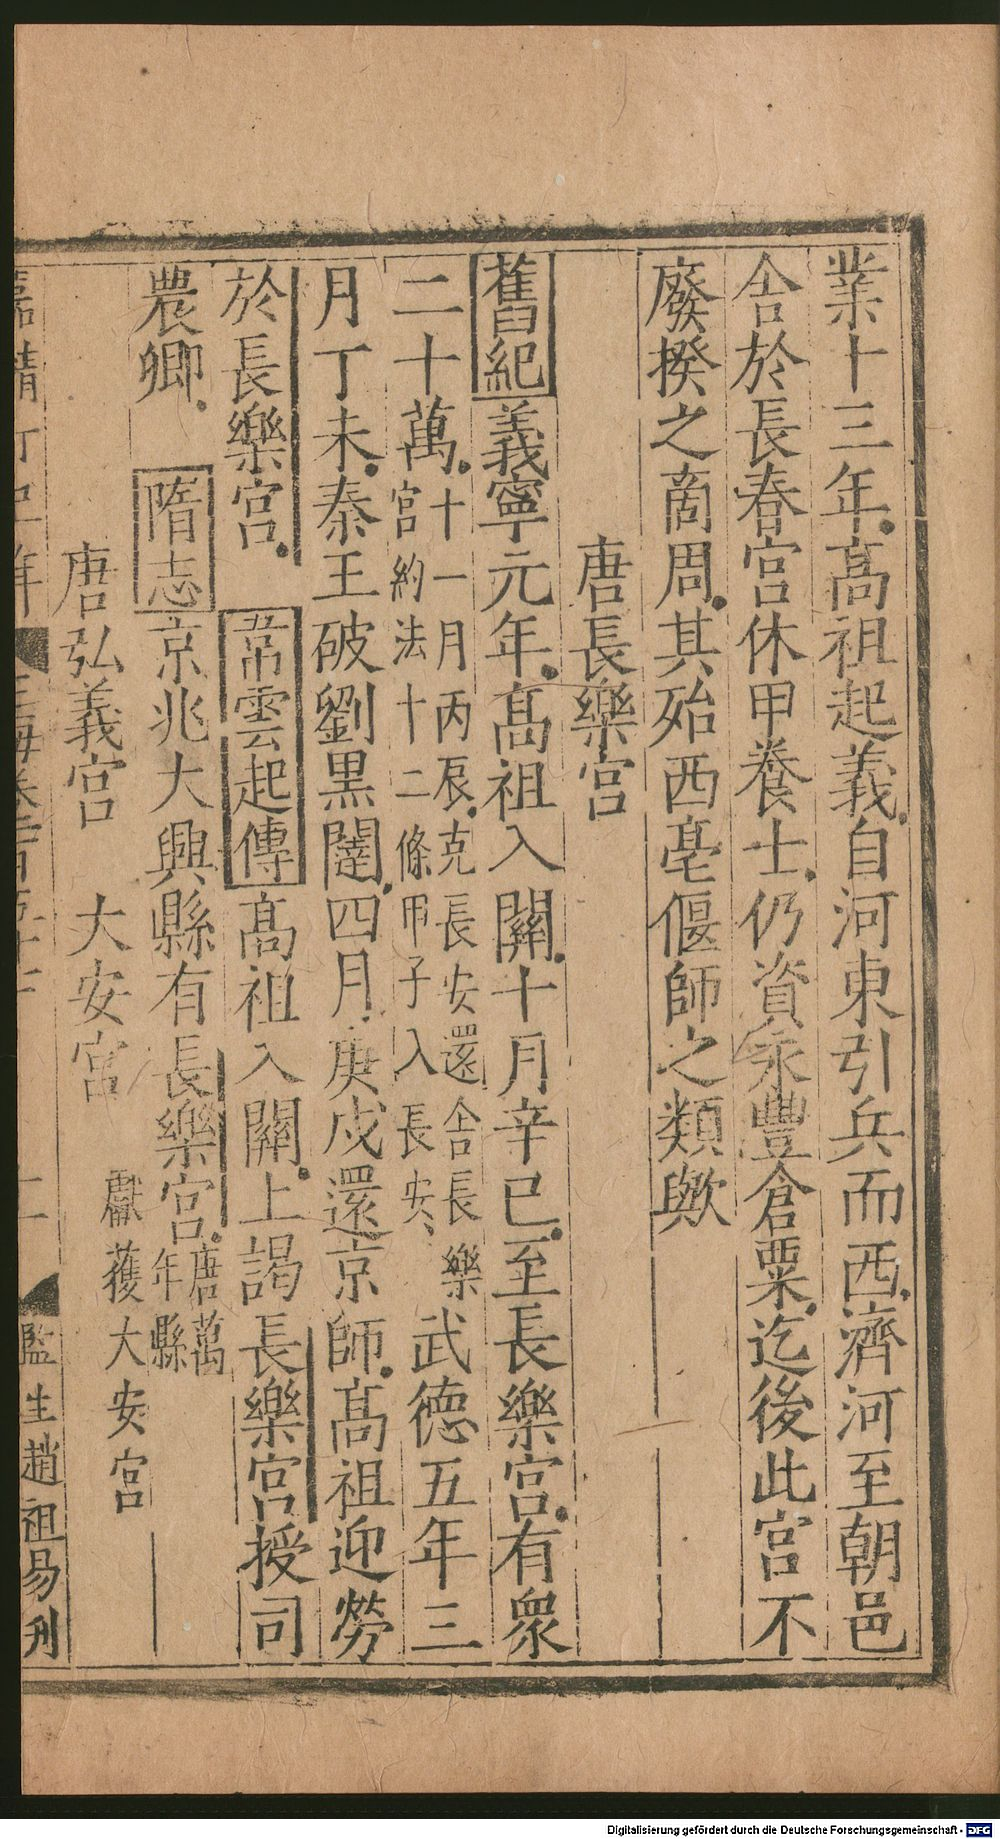 業十三年高祖起義自河東引兵而西濟河至朝邑
舍於長春宮休甲養士仍資永豐倉粟迄後此宮不
廢揆之商周其殆西亳偃師之類歟
唐長樂宮
舊紀義寧元年高祖入關十月辛巳至長樂宮有衆
二十萬十一月丙辰克長安還舍長樂宮約法十二條甲子入長安武德五年三
月丁未秦王破劉黑闥四月庚戌還京師高祖迎勞
於長樂宮韋雲起傳高祖入關上謁長樂宮授司
農卿隋志京兆大興縣有長樂宮唐萬年縣
唐弘義宮 大安宮 獻獲大安宮
嘉靖丁 年 玉海卷 百五十七 二 監生趙祖易刋
Digitalisierung gefördert durch die Deutsche Forschungsgemeinschaft - DFG